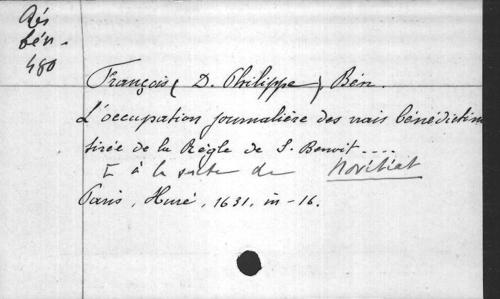 Rés
bén.
480
François (D. Philippe) Bén.
L'occupation journalière des vrais bénédictins
tirée de la Règle de S. Benoit ....
à la suite de Novitiat
Paris, Huré, 1631, in-16.